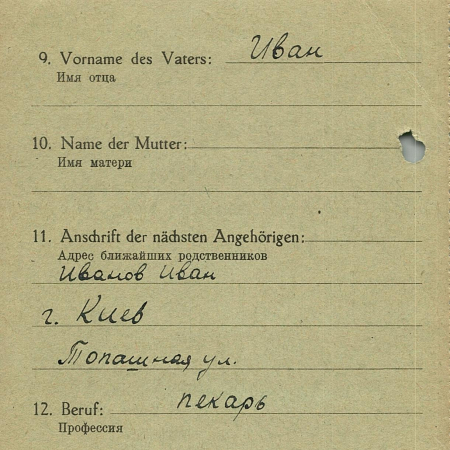 9. Vorname des Vaters: Иван
Имя отца
10. Name der Mutter:
Имя матери
11. Anschrift der nächsten Angehörigen:
Адрес ближайших родственников
Иванов Иван
г. Киев
Топашная ул.
12. Beruf: пекарь
Профессия